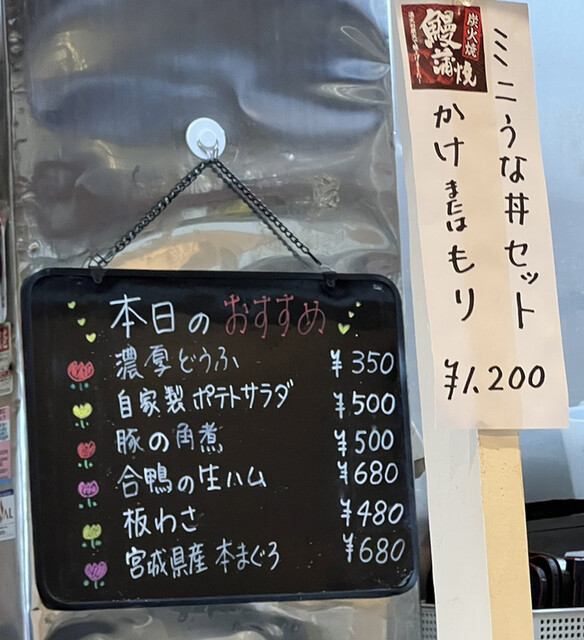 本日のおすすめ
濃厚どうふ ¥350
自家製ポテトサラダ ¥500
豚の角煮 ¥500
合鴨の生ハム ¥680
板わさ ¥480
宮城県産 本まぐろ ¥680
炭火焼
鰻蒲焼
ミニうな丼セット
かけまたはもり
¥1,200